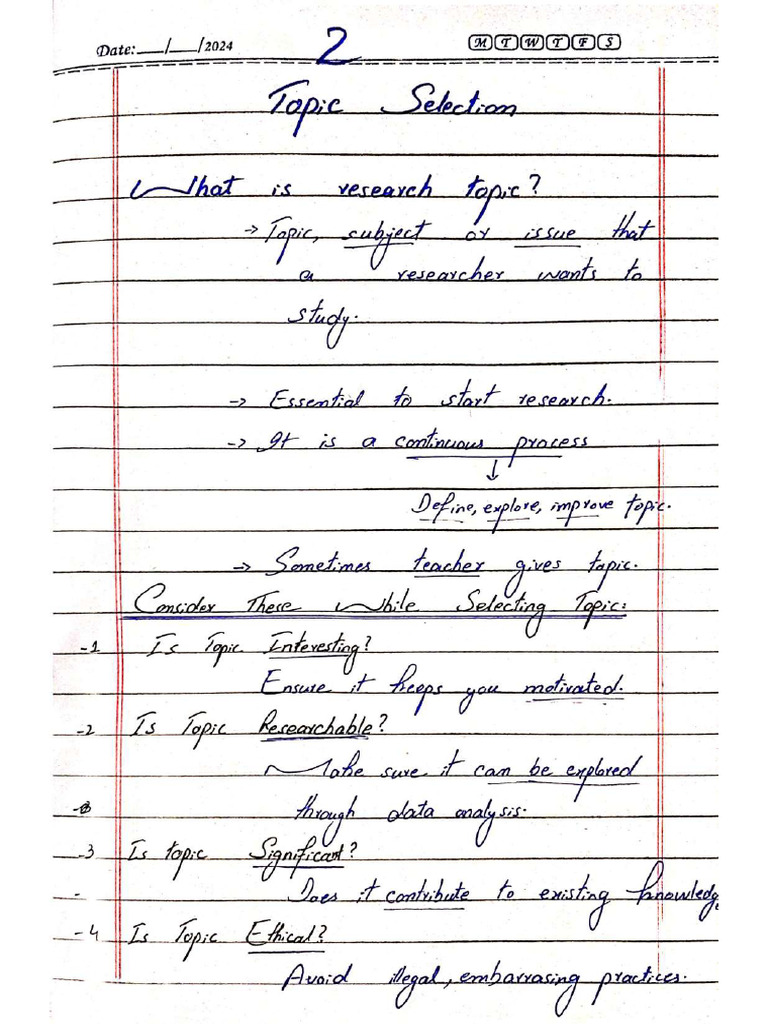 Date:___/___/2024 2 M T W T F S
Topic Selection
What is research topic?
→ Topic, subject or issue that
a researcher wants to
study.
→ Essential to start research.
→ It is a continuous process
↓
Define, explore, improve topic.
→ Sometimes teacher gives topic.
Consider These While Selecting Topic:
-1 Is Topic Interesting?
Ensure it keeps you motivated.
-2 Is Topic Researchable?
Make sure it can be explored
through data analysis.
-3 Is topic Significant?
- Does it contribute to existing knowledge
-4 Is Topic Ethical?
Avoid illegal, embarrasing practices.